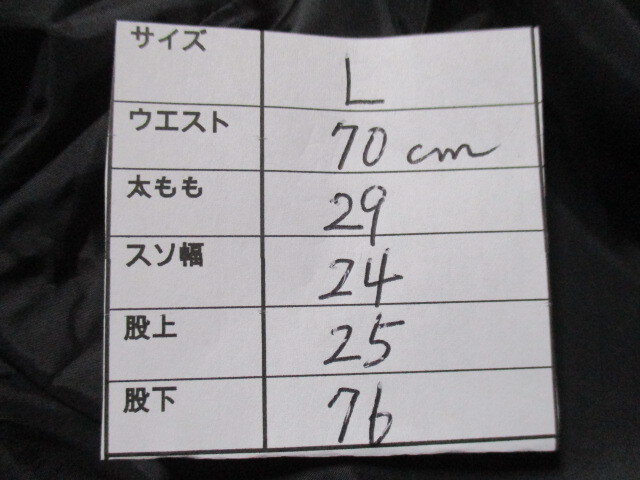 サイズ L
ウエスト 70 cm
太もも 29
スソ幅 24
股上 25
股下 76